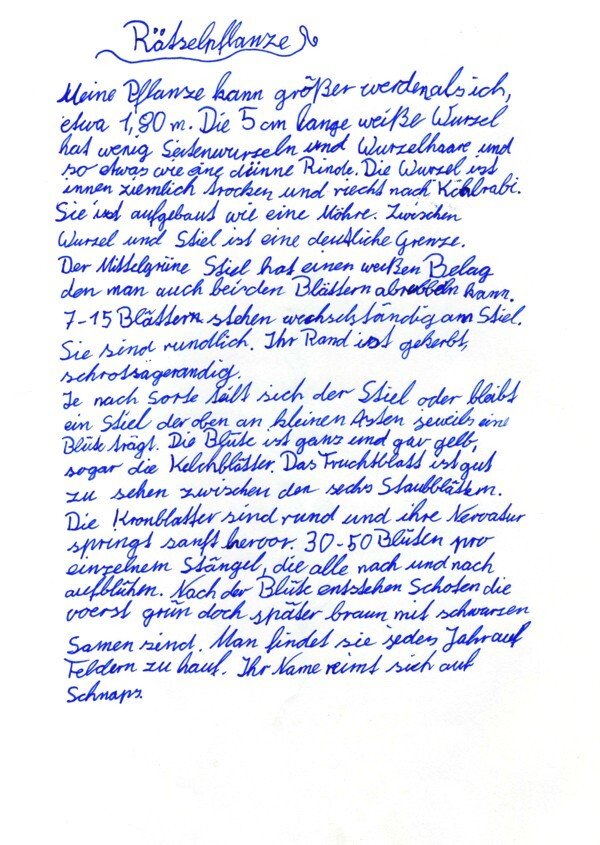 Rätselpflanze
Meine Pflanze kann größer werden als ich,
etwa 1,80 m. Die 5 cm lange weiße Wurzel
hat wenig Seitenwurzeln und Wurzelhaare und
so etwas wie eine dünne Rinde. Die Wurzel ist
innen ziemlich trocken und riecht nach Kohlrabi.
Sie ist aufgebaut wie eine Möhre. Zwischen
Wurzel und Stiel ist eine deutliche Grenze.
Der Mittelgrüne Stiel hat einen weißen Belag
den man auch bei den Blättern abrebbeln kann.
7-15 Blättern stehen wechselständig am Stiel.
Sie sind rundlich. Ihr Rand ist gekerbt,
schrotsägerandig.
Je nach Sorte teilt sich der Stiel oder bleibt
ein Stiel der oben an kleinen Ästen jeweils eine
Blüte trägt. Die Blüte ist ganz und gar gelb,
sogar die Kelchblätter. Das Fruchtblatt ist gut
zu sehen zwischen den sechs Staubblättern.
Die Kronblätter sind rund und ihre Nervatur
springt sanft hervor. 30-50 Blüten pro
einzelnem Stängel, die alle nach und nach
aufblühen. Nach der Blüte entstehen Schoten die
voerst grün doch später braun mit schwarzen
Samen sind. Man findet sie jedes Jahr auf
Feldern zu hauf. Ihr Name reimt sich auf
Schnaps.